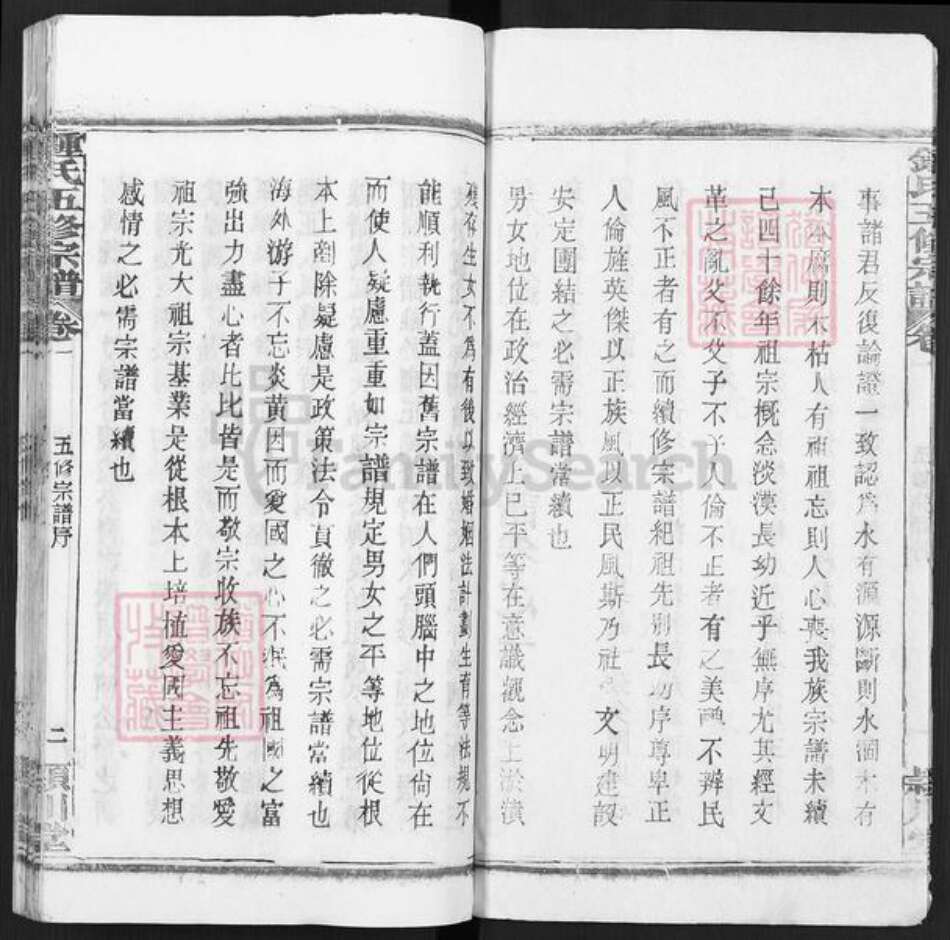 事諸君反復論證一致認爲水有源源斷則水涸木有
本本腐則木枯人有祖祖忘則人心喪我族宗譜未續
己四十餘年祖宗概念淡漠長幼近乎無序尤其經文
革之亂父不父子不子人倫不正者有之美醜不辨民
風不正者有之而續修宗譜紀祖先別長幼序尊卑正
人倫旌英傑以正族風以正民風斯乃社 文明建設
安定團結之必需宗譜當續也
男女地位在政治經濟上已平等在意識觀念上淤濱
後有生女不爲有後以致婚姻法計劃生育等法規不
能順利執行蓋因舊宗譜在人們頭腦中之地位尙在
而使人疑慮重重如宗譜規定男女之平等地位從根
本上剷除疑慮是政策法令貫徹之必需宗譜當續也
海外游子不忘炎黃因而愛國之心不泯爲祖國之富
強出力盡心者比比皆是而敬宗收族不忘祖先敬愛
祖宗光大祖宗基業是從根本上培植愛國主義思想
感情之必需宗譜當續也
鍾氏五修宗譜 卷一
五修宗譜序
二
潁川堂
鍾氏五修宗譜 卷
FamilySearch